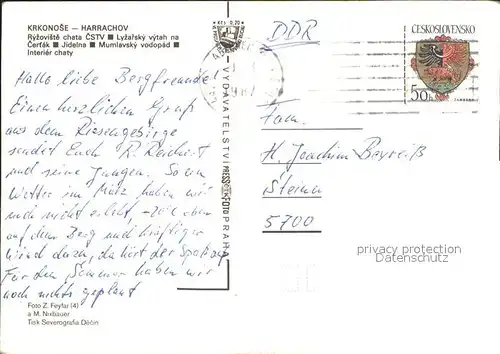 KRKONOŠE — HARRACHOV
Rýžoviště chata ČSTV ■ Lyžařský výtah na
Čerťák ■ Jídelna ■ Mumlavský vodopád ■
Interiér chaty
Hallo liebe Bergfreunde!
Einen herzlichen Gruß
aus dem Riesengebirge
sendet Euch R. Reichert
und seine Jungen. So ein
Wetter im März haben wir
noch nicht erlebt, -20°C oben
auf dem Berg und kräftiger
Wind dazu, da hört der Spaß auf
Für den Sommer haben wir
noch nichts geplant
Foto Z. Feyfar (4)
a M. Nuxbauer
Tisk Severografia Děčín
Kčs 0,70
VYDAVATELSTVÍ PRESSFOTO PRAHA
DDR
ČESKOSLOVENSKO
50 h
Fam.
H. Joachim Beyreiß
Steina
5700
privacy protection
Datenschutz